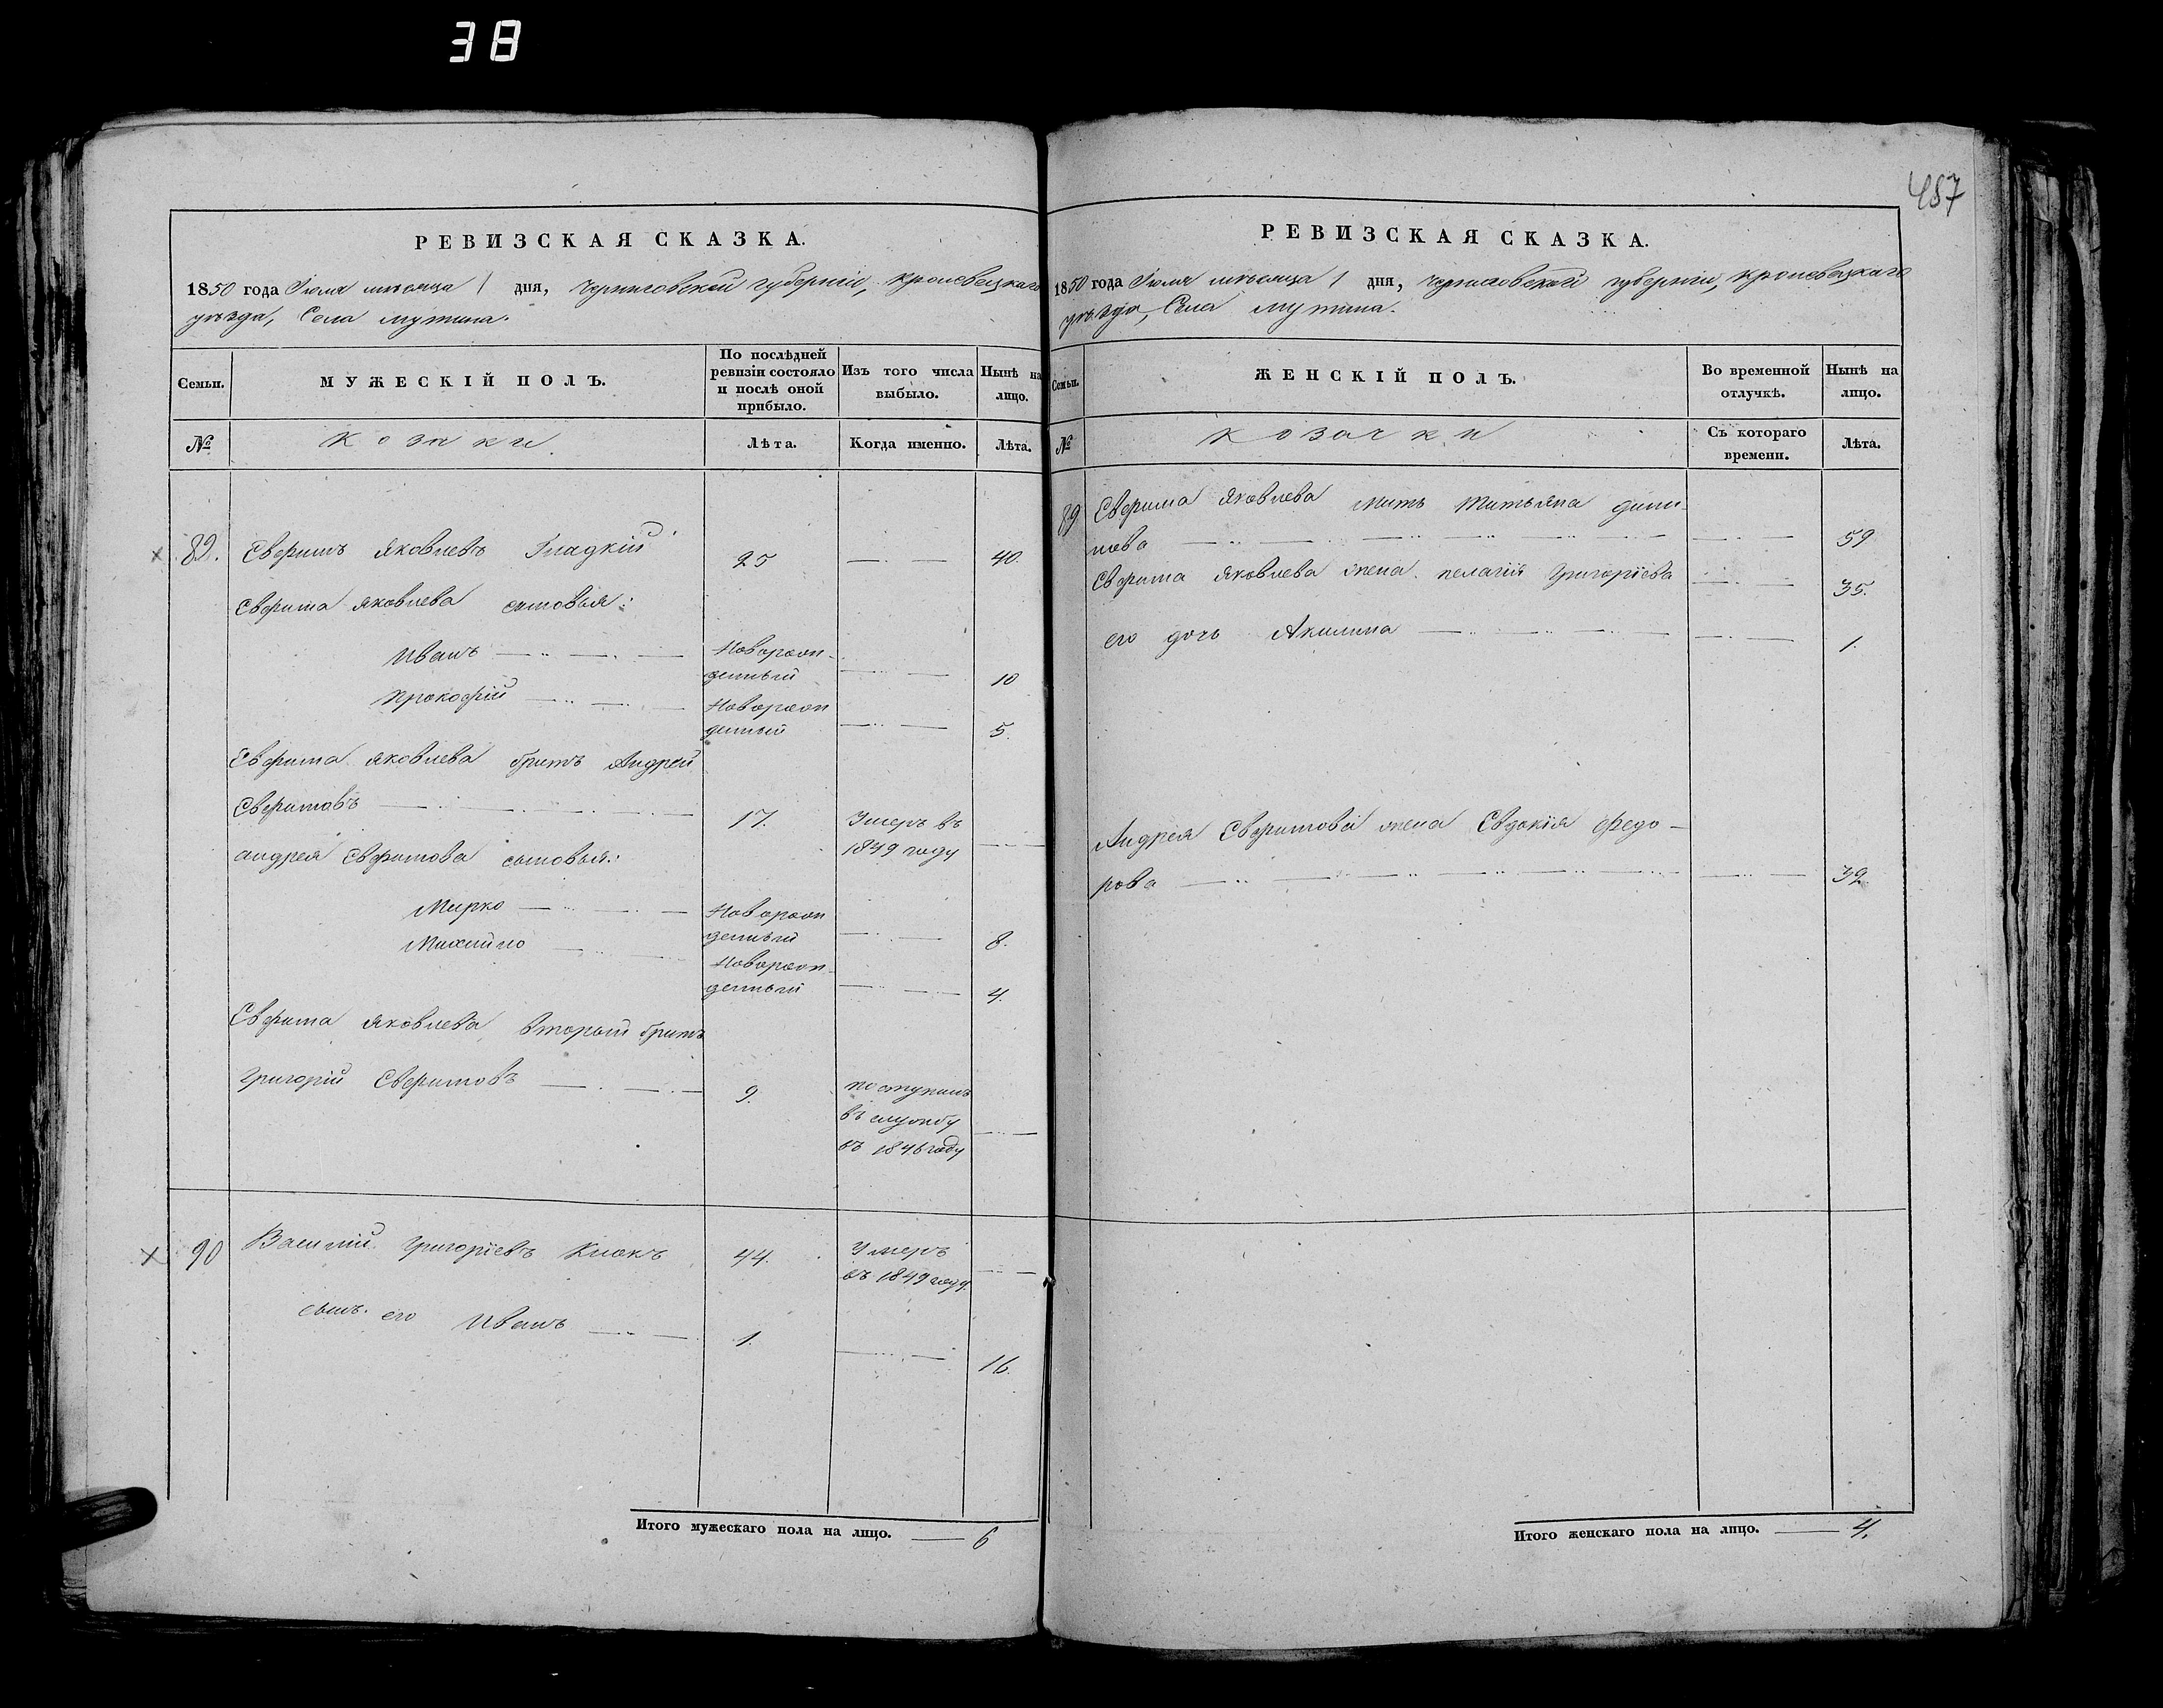 38
487
РЕВИЗСКАЯ СКАЗКА.
1850 года Іюля мѣсяца 1 дня, Черниговской губерніи, Кролевецкаго
уѣзда, Села Мутина.
Семьи.
МУЖЕСКІЙ ПОЛЪ.
По послѣдней ревизіи состояло и послѣ оной прибыло.
Изъ того числа выбыло.
Нынѣ на лицо.
№
Козаки
Лѣта.
Когда именно.
Лѣта.
89. Евфимъ Яковлевъ Гладкій 25 40.
Евфима Яковлева сыновья:
Иванъ Новорож-
денный 10
Прокофій Новорож
денный 5.
Евфима Яковлева братъ Андрей
Евфимовъ 17. Умеръ въ
1849 году
Андрея Евфимова сыновья:
Марко Новорож
денный 8.
Михайло Новорож-
денный 4.
Евфима Яковлева второй братъ
Григорій Евфимовъ 9. поступилъ
въ службу
въ 1846 году
90 Василій Григоріевъ 44. Умеръ
въ 1849 году.
сынъ его Иванъ 1.
16.
Итого мужескаго пола на лицо. 6
РЕВИЗСКАЯ СКАЗКА.
1850 года Іюля мѣсяца 1 дня, Черниговской губерніи, Кролевецкаго
уѣзда, Села Мутина.
Семьи.
ЖЕНСКІЙ ПОЛЪ.
Во временной отлучкѣ.
Нынѣ на лицо.
№
Козачки
Съ котораго времени.
Лѣта.
89 Евфима Яковлева мать Татьяна
59
Евфима Яковлева жена Пелагія Григоріева 35.
его дочь Акилина 1.
Андрея Евфимова жена Евдокія Федо-
рова 32
Итого женскаго пола на лицо. 4.